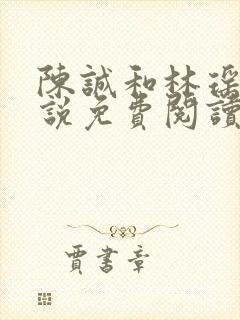 陳誠和林瑤
說免費閱讀
賈書章